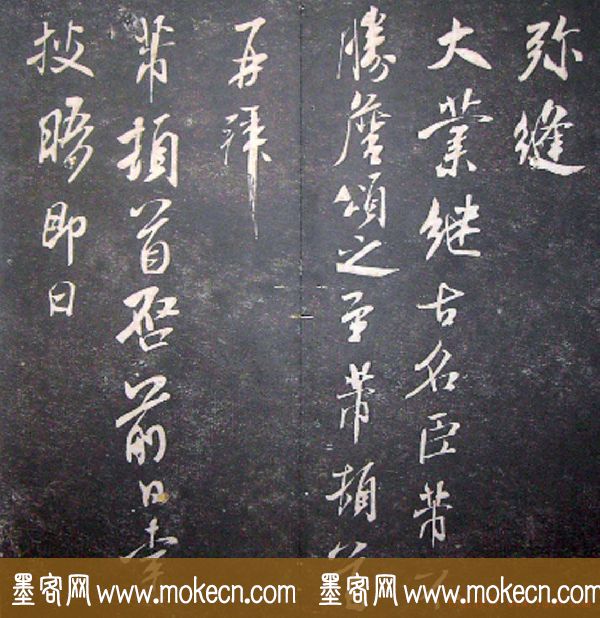 弥縫
大業継古名臣芾不
勝詹頌之至芾頓首
再拜
芾頓首啓前日
披晤即日
墨客网 www.mokecn.com 墨客网 www.mokecn.com